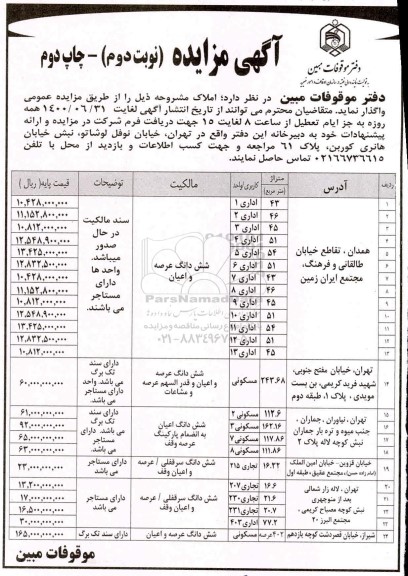 دفتر موقوفات مبین
آگهی مزایده (نوبت دوم) - چاپ دوم
دفتر موقوفات مبین در نظر دارد؛ املاک مشروحه ذیل را از طریق مزایده عمومی
واگذار نماید. متقاضیان محترم می توانند از تاریخ انتشار آگهی لغایت ۱۴۰۰/۰۶/۳۱ همه
روزه به جز ایام تعطیل از ساعت ۸ لغایت ۱۵ جهت دریافت فرم شرکت در مزایده و ارائه
پیشنهادات خود به دبیرخانه این دفتر واقع در تهران، خیابان نوفل لوشاتو، نبش خیابان
هانری کوربن، پلاک ۶۱ مراجعه و جهت کسب اطلاعات و بازدید از محل با تلفن
۰۲۱۶۶۷۳۶۶۱۵ تماس حاصل نمایند.
ردیف آدرس متراژ (متر مربع) کاربری/واحد مالکیت توضیحات قیمت پایه( ریال )
همدان ، تقاطع خیابان
طالقانی و فرهنگ،
مجتمع ایران زمین
شش دانگ عرصه
و اعیان
سند مالکیت
در حال
صدور
میباشد.
واحد ها
دارای
مستاجر
می باشند.
۱ ۴۳ اداری ۱ ۱۰,۴۲۸,۰۰۰,۰۰۰
۲ ۴۶ اداری ۲ ۱۱,۱۵۲,۸۰۰,۰۰۰
۳ ۴۵ اداری ۳ ۱۰,۸۱۲,۰۰۰,۰۰۰
۴ ۵۱ اداری ۴ ۱۲,۵۴۸,۹۰۰,۰۰۰
۵ ۵۴ اداری ۵ ۱۳,۴۲۵,۰۰۰,۰۰۰
۶ ۵۱ اداری ۶ ۱۲,۸۳۲,۵۰۰,۰۰۰
۷ ۴۳ اداری ۷ ۱۰,۴۲۸,۰۰۰,۰۰۰
۸ ۴۶ اداری ۸ ۱۱,۱۵۲,۸۰۰,۰۰۰
۹ ۴۵ اداری ۹ ۱۰,۸۱۲,۰۰۰,۰۰۰
۱۰ ۵۱ اداری ۱۰ ۱۲,۵۴۸,۹۰۰,۰۰۰
۱۱ ۵۴ اداری ۱۱ ۱۳,۴۲۵,۰۰۰,۰۰۰
۱۲ ۵۱ اداری ۱۲ ۱۲,۸۳۲,۵۰۰,۰۰۰
۱۳ ۴۵ اداری ۱۳ ۱۰,۸۱۲,۰۰۰,۰۰۰
۱۴ تهران، خیابان مفتح جنوبی،
شهید فرید کریمی، بن بست
مویدی ، پلاک ۱، طبقه دوم
۲۴۳.۶۸ مسکونی
شش دانگ عرصه
و اعیان و قدر السهم عرصه
و مشاعات
دارای سند
تک برگ
می باشد. واحد
دارای مستاجر
می باشد
۶۰,۰۰۰,۰۰۰,۰۰۰
تهران، نیاوران ، جماران ،
جنب میوه و تره بار جماران
نبش کوچه لاله پلاک ۲
شش دانگ اعیان
به انضمام پارکینگ
عرصه وقف
دارای سند
تک برگ
می باشد. دارای
مستاجر
می باشد.
۱۵ ۱۱۲.۶ مسکونی ۲ ۶۱,۰۰۰,۰۰۰,۰۰۰
۱۶ ۱۶۲.۱۶ مسکونی ۳ ۹۲,۰۰۰,۰۰۰,۰۰۰
۱۷ ۱۱۷.۸۶ مسکونی ۷ ۶۵,۰۰۰,۰۰۰,۰۰۰
۱۸ ۱۱۱.۸۶ مسکونی ۸ ۶۳,۰۰۰,۰۰۰,۰۰۰
۱۹ خیابان قزوین - خیابان امین الملک
مجتمع عقیق، طبقه اول
۱۶.۳۲ تجاری ۲۱۵
شش دانگ سرقفلی / عرصه
و اعیان وقف
دارای مستاجر
می باشد
۲۳,۰۰۰,۰۰۰,۰۰۰
تهران ، لاله زار شمالی
بعد از منوچهری
نبش کوچه مصباح کریمی .
مجتمع البرز ۲۰
شش دانگ سرقفلی / عرصه
و اعیان وقف
دارای مستاجر
می باشد
۲۰ ۱۶.۶ تجاری ۲۰۷ ۱۳,۲۰۰,۰۰۰,۰۰۰
۲۱ ۲۱.۶ تجاری ۲۳۰ ۱۷,۰۰۰,۰۰۰,۰۰۰
۲۲ ۲۰.۷ تجاری ۲۳۱ ۱۶,۵۰۰,۰۰۰,۰۰۰
۷۷.۲ اداری ۴۰۳ ۳۰,۰۰۰,۰۰۰,۰۰۰
شیراز، خیابان قصردشت کوچه یازدهم ۴۰۲ عرصه مسکونی شش دانگ عرصه و اعیان دارای سند تک برگ ۱۶۵,۰۰۰,۰۰۰,۰۰۰
موقوفات مبین
ParsNamadData
۰۲۱-۸۸۳۴۹۶۷۰